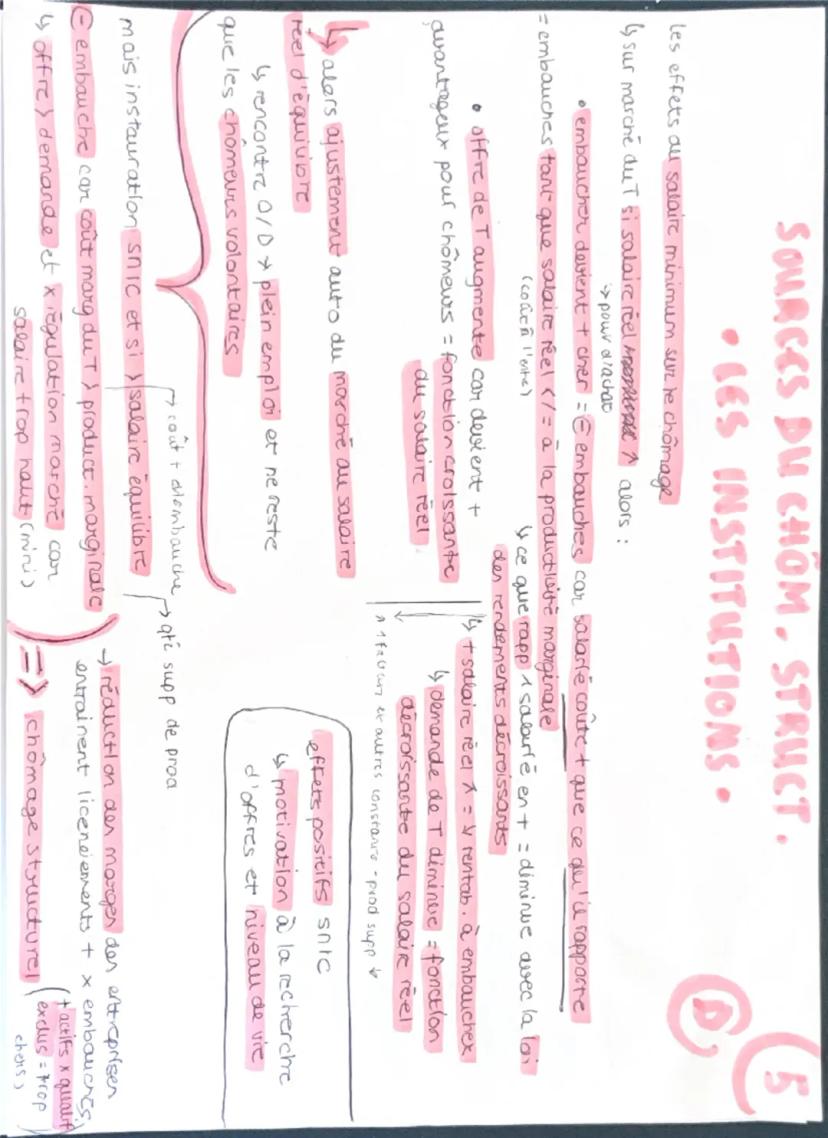 5
D,
SOURCES DU CHÔM. STRUCT.
• LES INSTITUTIONS •
les effets du salaire minimum sur le chômage
↳ sur marché du T si salaire réel ↗ alors :
→ pouv d'achat
• embaucher devient + cher = ⊖ embauches car salarié coûte + que ce qu'il rapporte
= embauches tant que salaire réel </= à la productivité marginale
(coût à l'ent)
↳ ce que rapp 1 salarié en + = diminue avec la loi
des rendements décroissants
↳ + salaire réel ↗ = ↓ rentab. à embaucher
↳ demande de T diminue = fonction
décroissante du salaire réel
↗ 1 facteur et autres constants - prod supp ↓
• offre de T augmente car devient +
avantageux pour chômeurs = fonction croissante
du salaire réel
↳ alors ajustement auto du marché au salaire
réel d'équilibre
↳ rencontre O/D → plein emploi et ne reste
que les chômeurs volontaires
effets positifs SMIC
↳ motivation à la recherche
d'offres et niveau de vie
→ coût + d'embauche
→ qté supp de prod
mais instauration SMIC et si > salaire équilibre
⊖ embauche car coût marg du T > product. marginale
↳ offre > demande et x régulation marché car
salaire trop haut (mini)
→ réduction des marges des entreprises
entrainent licenciements + x embauches
=> chômage structurel
(+ actifs x qualif
exclus = trop
chers)